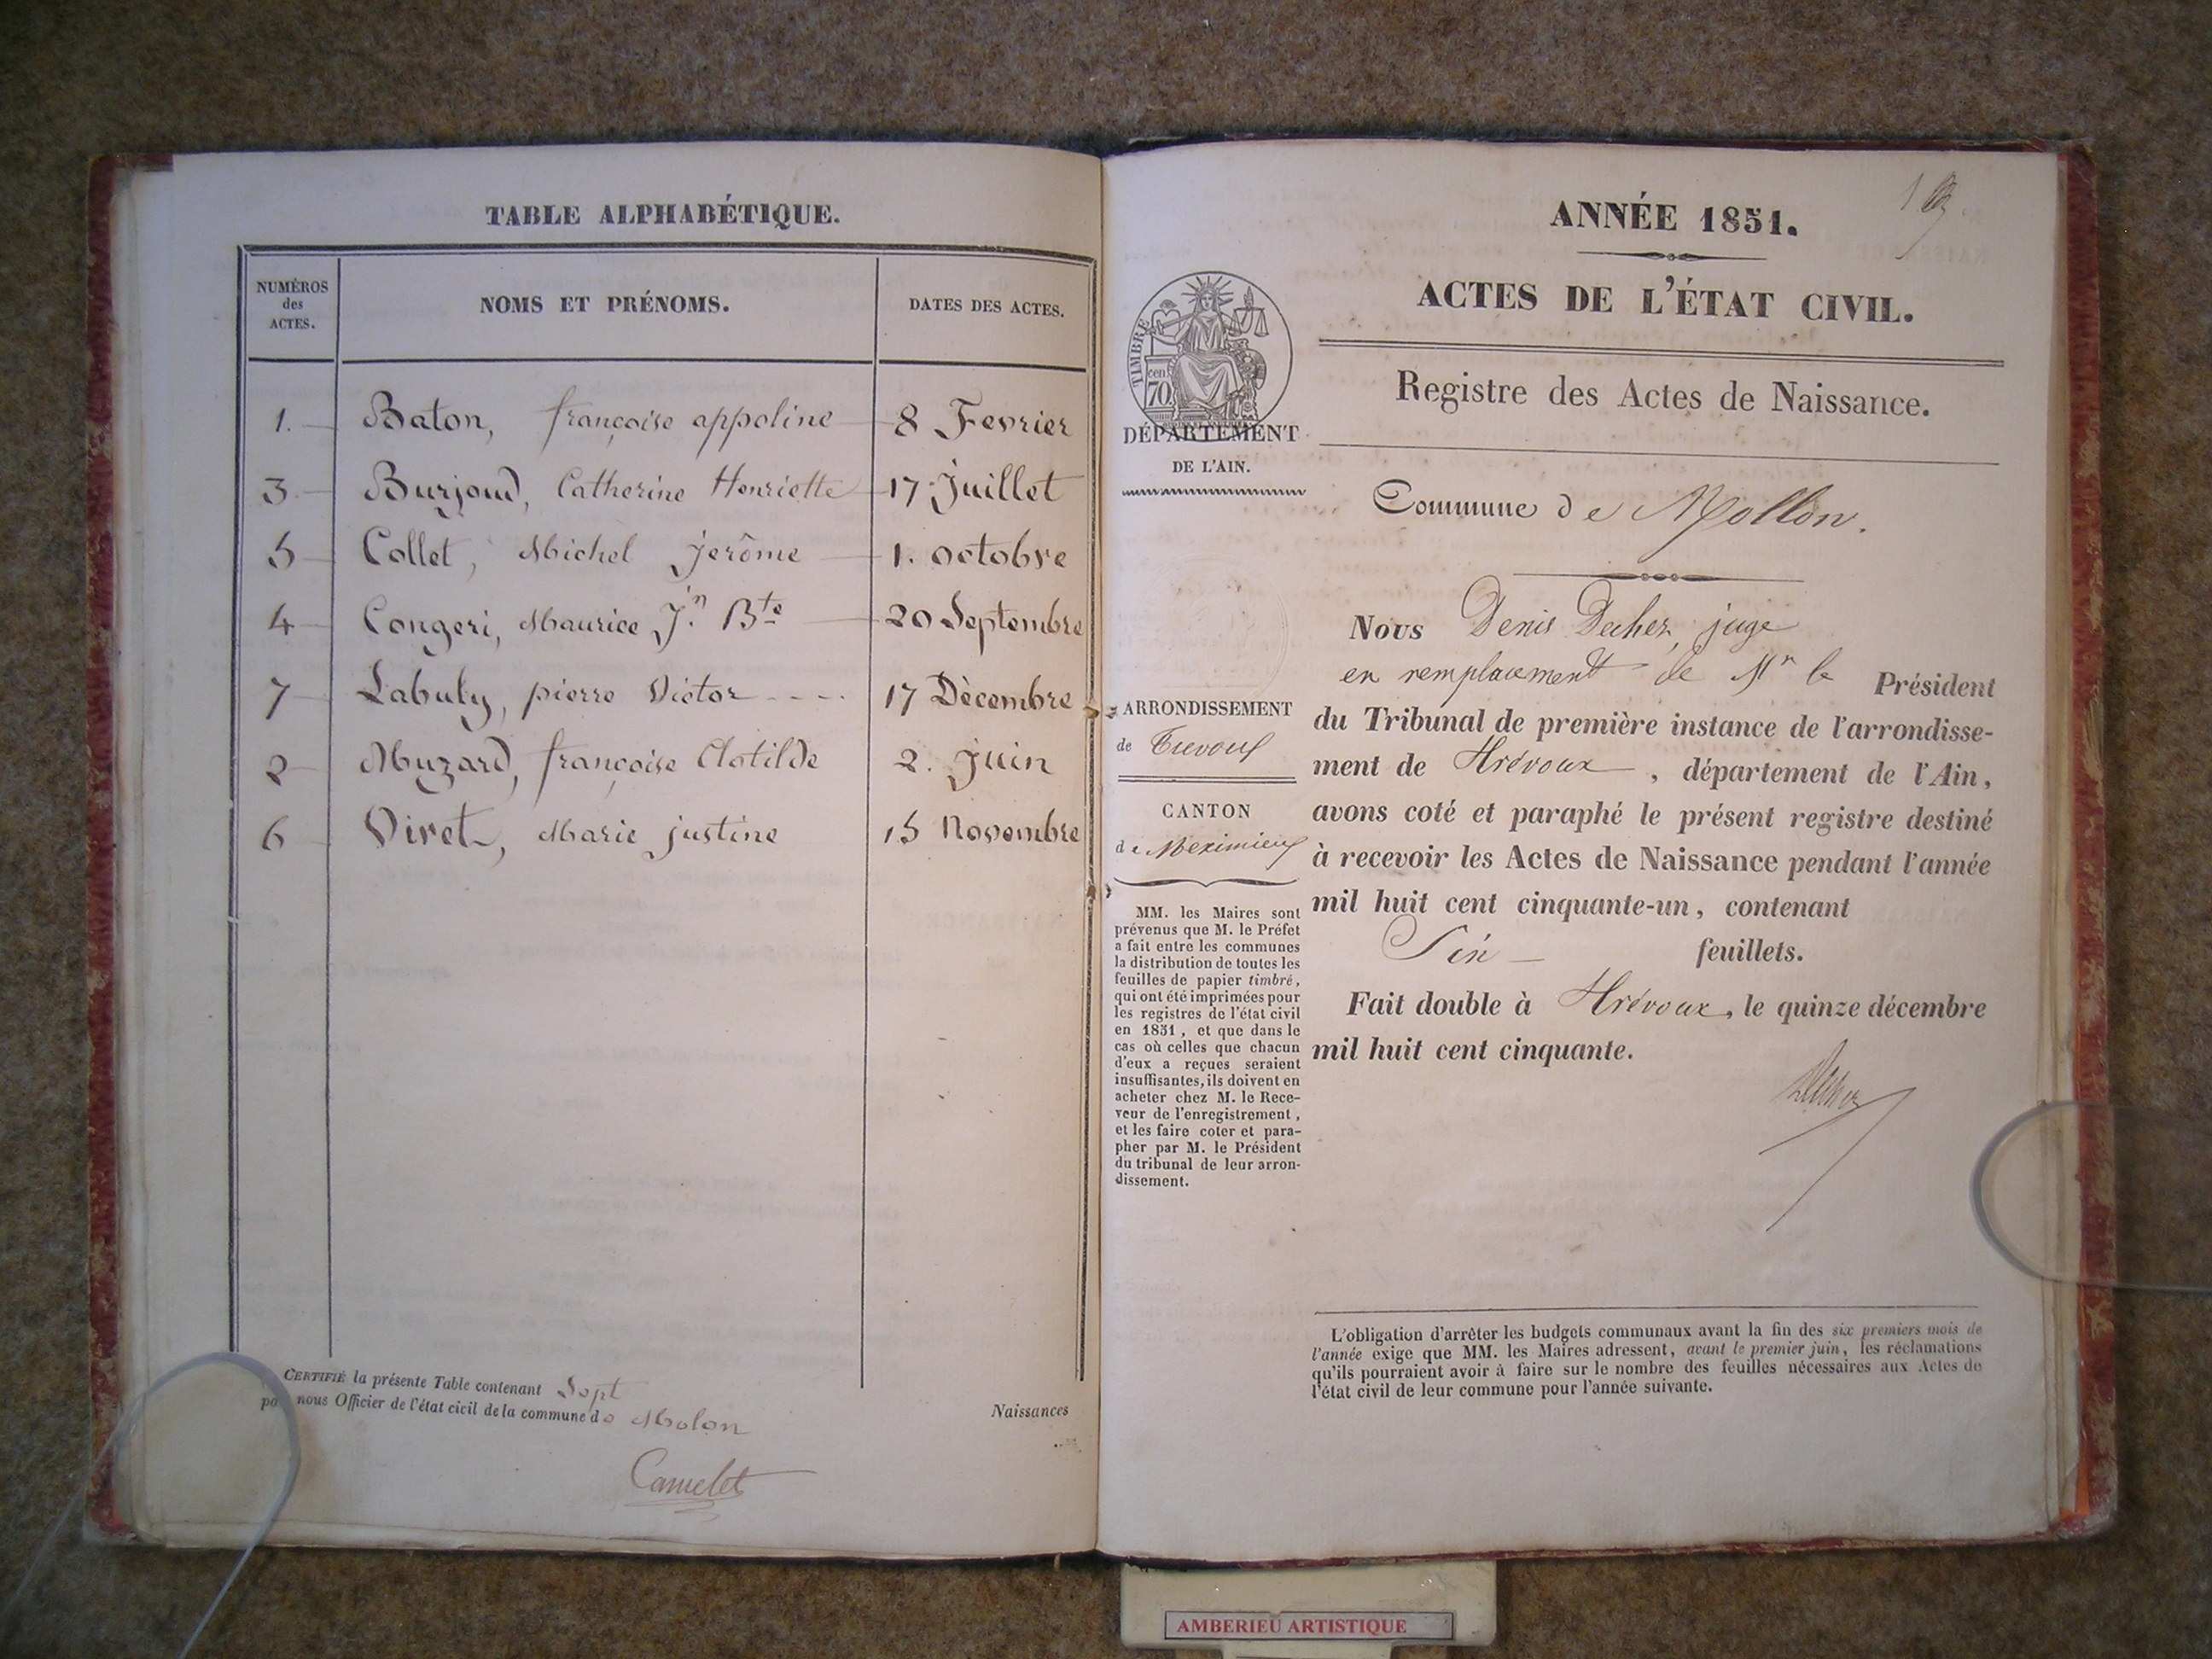 TABLE ALPHABÉTIQUE.
NUMÉROS des ACTES. NOMS ET PRÉNOMS. DATES DES ACTES.
1. Baton, françoise appoline 8 Fevrier
3 Burjoud, Catherine Henriette 17 Juillet
5 Collet, Michel jerôme 1. octobre
4 Congeri, Maurice Jn. Bte 20 Septembre
7 Labuly, pierre Victor 17 Dècembre
2 Muzard, françoise Clotilde 2. juin
6 Viret, Marie justine 15 Novembre
CERTIFIÉ la présente Table contenant Sept Naissances
nous Officier de l'état civil de la commune de Molon
Camelet
ANNÉE 1851.
ACTES DE L'ÉTAT CIVIL.
Registre des Actes de Naissance.
TIMBRE
cen.
70
DÉPARTEMENT
DE L'AIN.
ARRONDISSEMENT
de Trevoux
CANTON
de Meximieux
MM. les Maires sont
prévenus que M. le Préfet
a fait entre les communes
la distribution de toutes les
feuilles de papier timbré,
qui ont été imprimées pour
les registres de l'état civil
en 1851, et que dans le
cas où celles que chacun
d'eux a reçues seraient
insuffisantes, ils doivent en
acheter chez M. le Rece-
veur de l'enregistrement,
et les faire coter et para-
pher par M. le Président
du tribunal de leur arron-
dissement.
Commune de Mollon.
Nous Denis Decher, juge
en remplacement de Mr le Président
du Tribunal de première instance de l'arrondisse-
ment de Trévoux, département de l'Ain,
avons coté et paraphé le présent registre destiné
à recevoir les Actes de Naissance pendant l'année
mil huit cent cinquante-un, contenant
Six feuillets.
Fait double à Trévoux, le quinze décembre
mil huit cent cinquante.
L'obligation d'arrêter les budgets communaux avant la fin des six premiers mois de
l'année exige que MM. les Maires adressent, avant le premier juin, les réclamations
qu'ils pourraient avoir à faire sur le nombre des feuilles nécessaires aux Actes de
l'état civil de leur commune pour l'année suivante.
AMBERIEU ARTISTIQUE